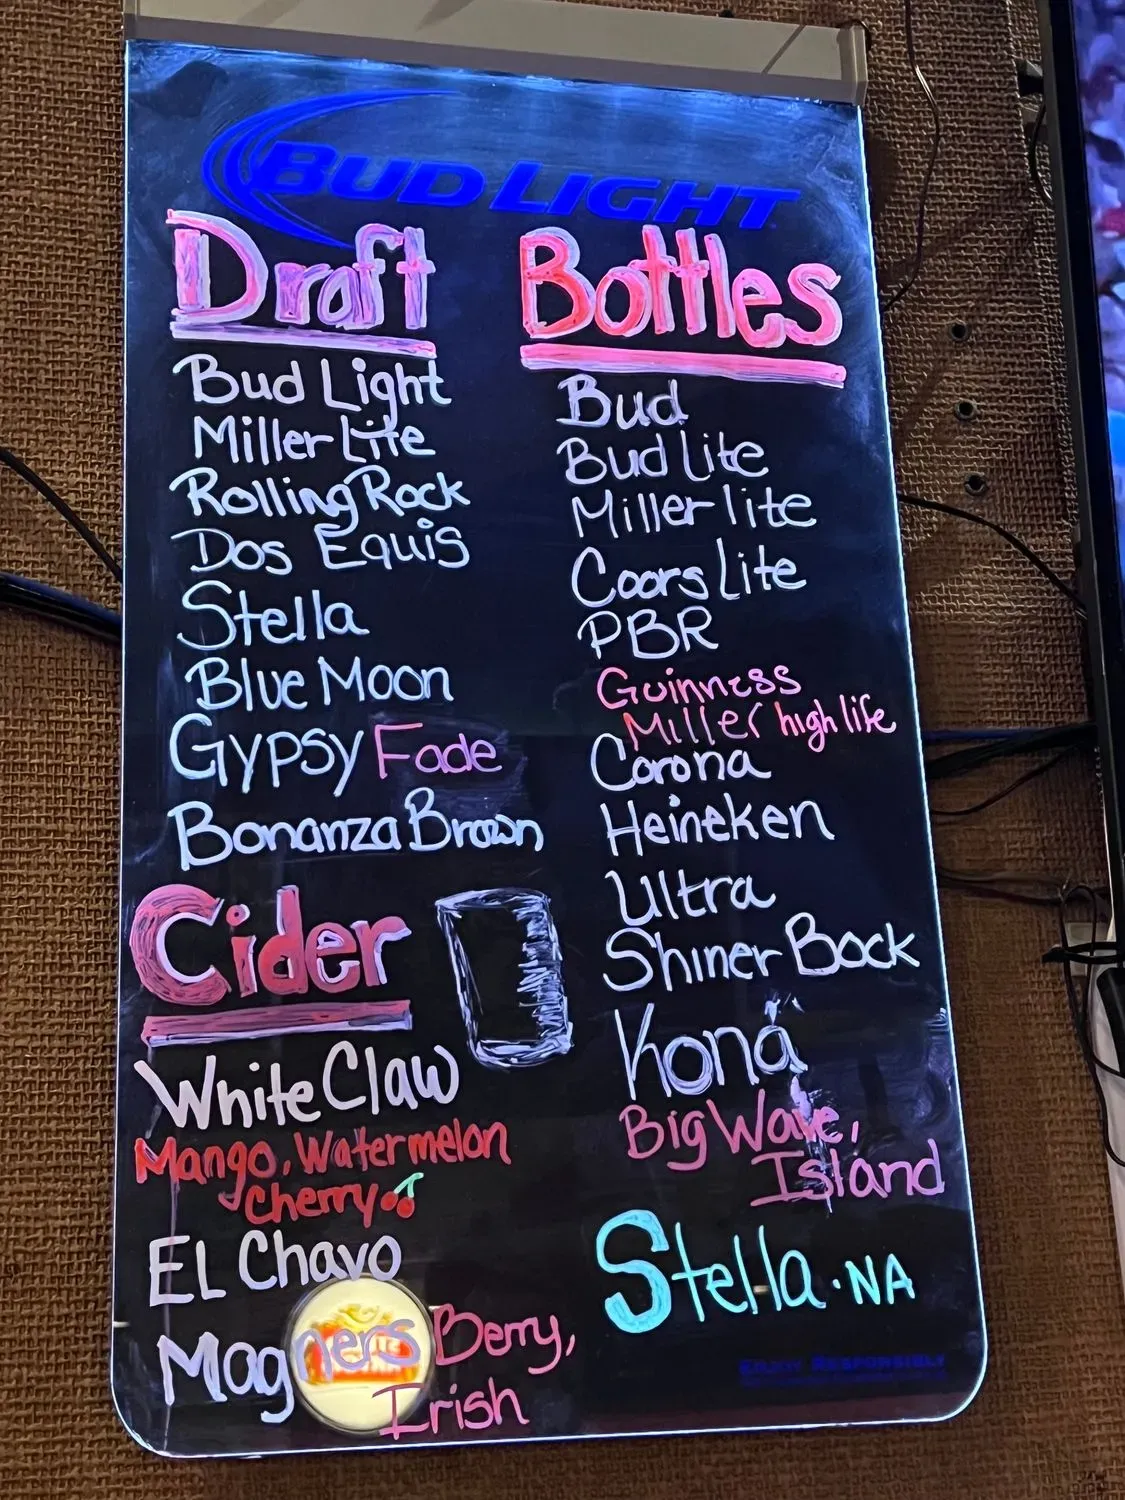 BUD LIGHT
Draft
Bud Light
Miller Lite
Rolling Rock
Dos Equis
Stella
Blue Moon
Gypsy Fade
Bonanza Brown
Cider
White Claw
Mango, Watermelon
Cherry
EL Chavo
Magners Berry,
Irish
Bottles
Bud
Bud Lite
Miller lite
Coors Lite
PBR
Guinness
Miller high life
Corona
Heineken
Ultra
Shiner Bock
Kona
Big Wave,
Island
Stella · NA
ENJOY RESPONSIBLY